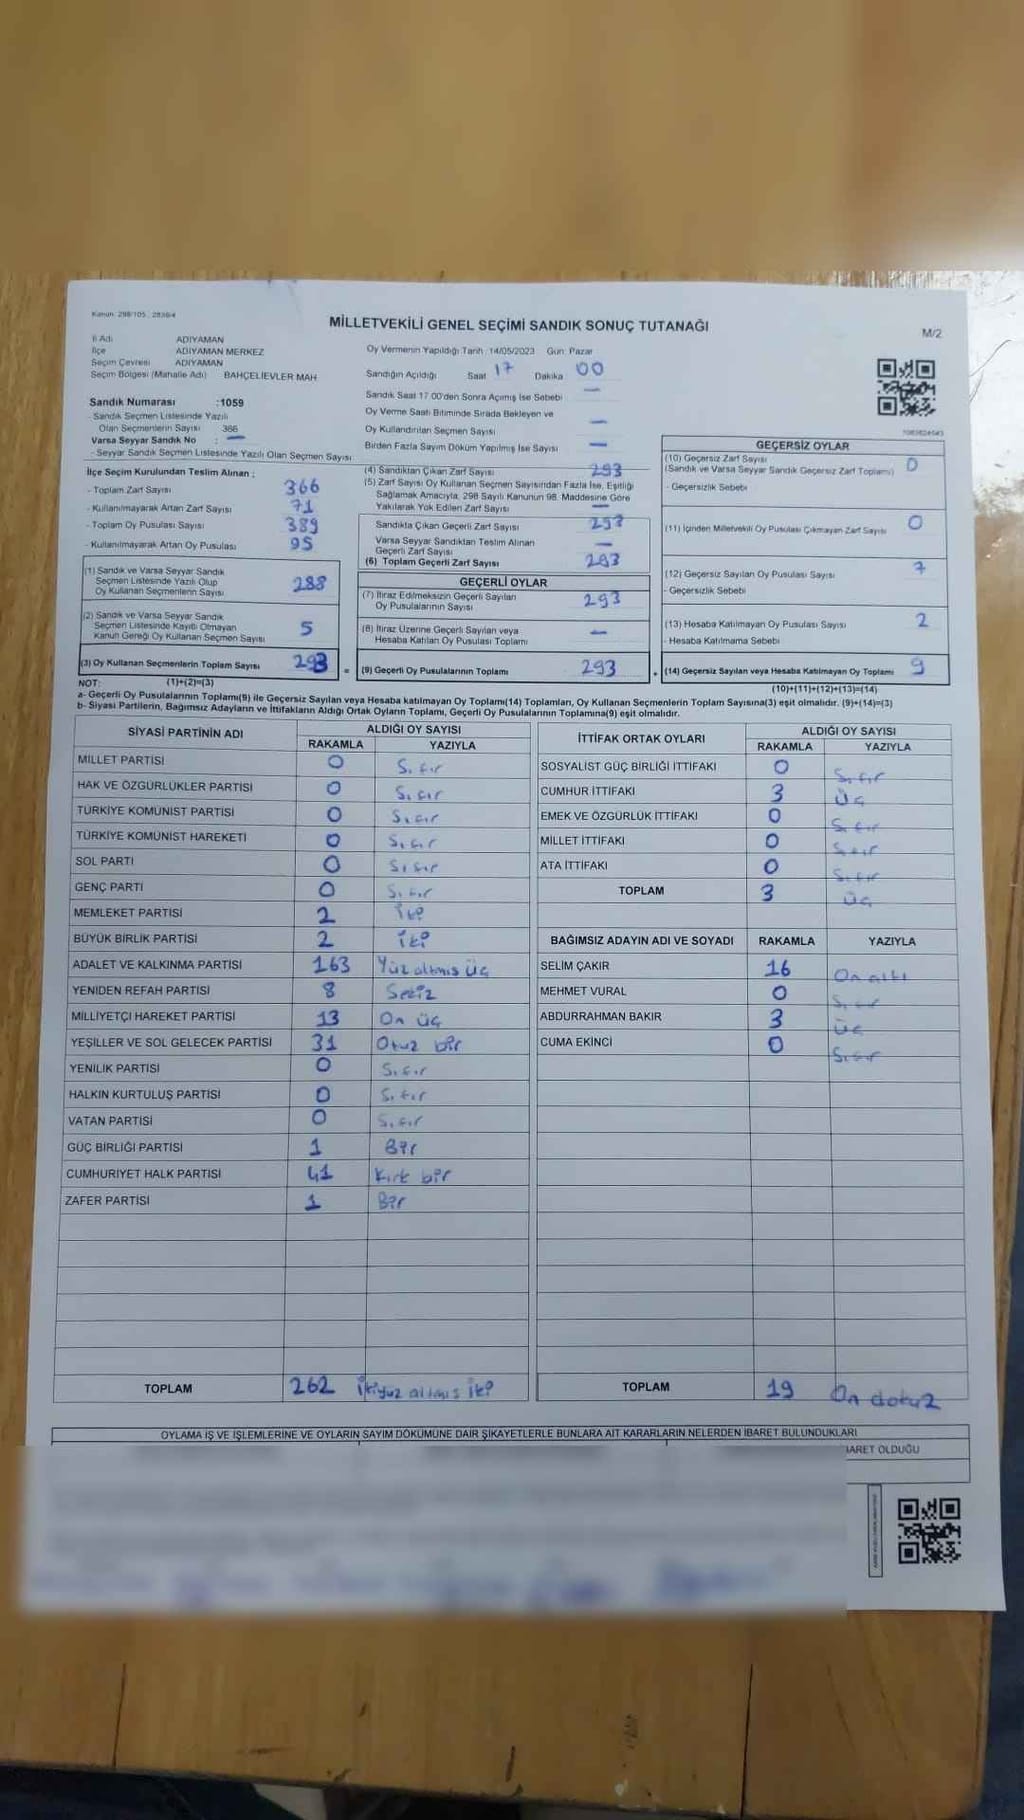 Kanun: 298/105, 2839/4
MİLLETVEKİLİ GENEL SEÇİMİ SANDIK SONUÇ TUTANAĞI
M/2
İl Adı ADIYAMAN
İlçe ADIYAMAN MERKEZ
Seçim Çevresi ADIYAMAN
Seçim Bölgesi (Mahalle Adı) BAHÇELİEVLER MAH
Oy Vermenin Yapıldığı Tarih :14/05/2023 Gün: Pazar
Sandığın Açıldığı Saat 17 Dakika 00
Sandık Saat 17.00'den Sonra Açılmış İse Sebebi —
Oy Verme Saati Bitiminde Sırada Bekleyen ve
Oy Kullandırılan Seçmen Sayısı —
Birden Fazla Sayım Döküm Yapılmış İse Sayısı —
Sandık Numarası :1059
- Sandık Seçmen Listesinde Yazılı
Olan Seçmenlerin Sayısı : 366
Varsa Seyyar Sandık No : —
- Seyyar Sandık Seçmen Listesinde Yazılı Olan Seçmen Sayısı
İlçe Seçim Kurulundan Teslim Alınan :
- Toplam Zarf Sayısı 366
- Kullanılmayarak Artan Zarf Sayısı 71
- Toplam Oy Pusulası Sayısı 389
- Kullanılmayarak Artan Oy Pusulası 95
(1) Sandık ve Varsa Seyyar Sandık
Seçmen Listesinde Yazılı Olup
Oy Kullanan Seçmenlerin Sayısı 288
(2) Sandık ve Varsa Seyyar Sandık
Seçmen Listesinde Kayıtlı Olmayan
Kanun Gereği Oy Kullanan Seçmen Sayısı 5
(3) Oy Kullanan Seçmenlerin Toplam Sayısı 293
(4) Sandıktan Çıkan Zarf Sayısı 293
(5) Zarf Sayısı Oy Kullanan Seçmen Sayısından Fazla İse, Eşitliği
Sağlamak Amacıyla, 298 Sayılı Kanunun 98. Maddesine Göre
Yakılarak Yok Edilen Zarf Sayısı —
Sandıkta Çıkan Geçerli Zarf Sayısı 293
Varsa Seyyar Sandıktan Teslim Alınan
Geçerli Zarf Sayısı —
(6) Toplam Geçerli Zarf Sayısı 293
GEÇERLİ OYLAR
(7) İtiraz Edilmeksizin Geçerli Sayılan
Oy Pusulalarının Sayısı 293
(8) İtiraz Üzerine Geçerli Sayılan veya
Hesaba Katılan Oy Pusulası Toplamı —
= (9) Geçerli Oy Pusulalarının Toplamı 293
GEÇERSİZ OYLAR
(10) Geçersiz Zarf Sayısı
(Sandık ve Varsa Seyyar Sandık Geçersiz Zarf Toplamı) 0
- Geçersizlik Sebebi
(11) İçinden Milletvekili Oy Pusulası Çıkmayan Zarf Sayısı 0
(12) Geçersiz Sayılan Oy Pusulası Sayısı 7
- Geçersizlik Sebebi
(13) Hesaba Katılmayan Oy Pusulası Sayısı 2
- Hesaba Katılmama Sebebi
+ (14) Geçersiz Sayılan veya Hesaba Katılmayan Oy Toplamı 9
NOT: (1)+(2)=(3) (10)+(11)+(12)+(13)=(14)
a- Geçerli Oy Pusulalarının Toplamı(9) ile Geçersiz Sayılan veya Hesaba katılmayan Oy Toplamı(14) Toplamları, Oy Kullanan Seçmenlerin Toplam Sayısına(3) eşit olmalıdır. (9)+(14)=(3)
b- Siyasi Partilerin, Bağımsız Adayların ve İttifakların Aldığı Ortak Oyların Toplamı, Geçerli Oy Pusulalarının Toplamına(9) eşit olmalıdır.
SİYASİ PARTİNİN ADI ALDIĞI OY SAYISI
RAKAMLA YAZIYLA
MİLLET PARTİSİ 0 Sıfır
HAK VE ÖZGÜRLÜKLER PARTİSİ 0 Sıfır
TÜRKİYE KOMÜNİST PARTİSİ 0 Sıfır
TÜRKİYE KOMÜNİST HAREKETİ 0 Sıfır
SOL PARTİ 0 Sıfır
GENÇ PARTİ 0 Sıfır
MEMLEKET PARTİSİ 2 İki
BÜYÜK BİRLİK PARTİSİ 2 İki
ADALET VE KALKINMA PARTİSİ 163 Yüz altmış üç
YENİDEN REFAH PARTİSİ 8 Sekiz
MİLLİYETÇİ HAREKET PARTİSİ 13 On üç
YEŞİLLER VE SOL GELECEK PARTİSİ 31 Otuz bir
YENİLİK PARTİSİ 0 Sıfır
HALKIN KURTULUŞ PARTİSİ 0 Sıfır
VATAN PARTİSİ 0 Sıfır
GÜÇ BİRLİĞİ PARTİSİ 1 Bir
CUMHURİYET HALK PARTİSİ 41 Kırk bir
ZAFER PARTİSİ 1 Bir
TOPLAM 262 İkiyüz altmış iki
İTTİFAK ORTAK OYLARI ALDIĞI OY SAYISI
RAKAMLA YAZIYLA
SOSYALİST GÜÇ BİRLİĞİ İTTİFAKI 0 Sıfır
CUMHUR İTTİFAKI 3 Üç
EMEK VE ÖZGÜRLÜK İTTİFAKI 0 Sıfır
MİLLET İTTİFAKI 0 Sıfır
ATA İTTİFAKI 0 Sıfır
TOPLAM 3 Üç
BAĞIMSIZ ADAYIN ADI VE SOYADI RAKAMLA YAZIYLA
SELİM ÇAKIR 16 On altı
MEHMET VURAL 0 Sıfır
ABDURRAHMAN BAKIR 3 Üç
CUMA EKİNCİ 0 Sıfır
TOPLAM 19 On dokuz
OYLAMA İŞ VE İŞLEMLERİNE VE OYLARIN SAYIM DÖKÜMÜNE DAİR ŞİKAYETLERLE BUNLARA AİT KARARLARIN NELERDEN İBARET BULUNDUKLARI
OLDUĞU